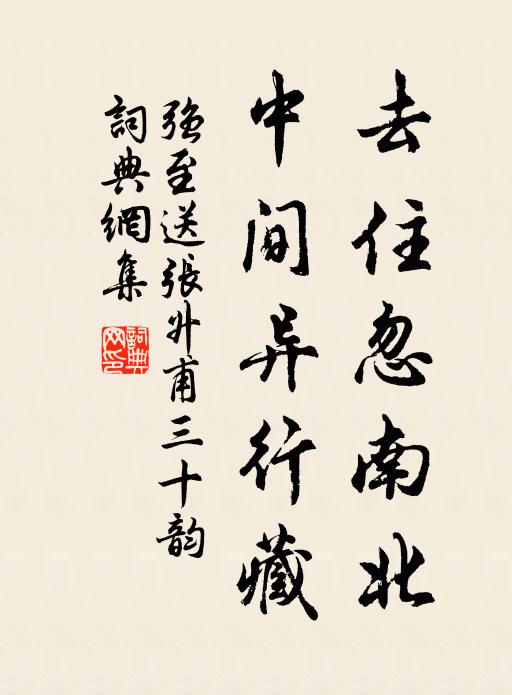 去住忽南北
中间异行藏
强至送張升甫三十韵
詞典網集
詞典网印